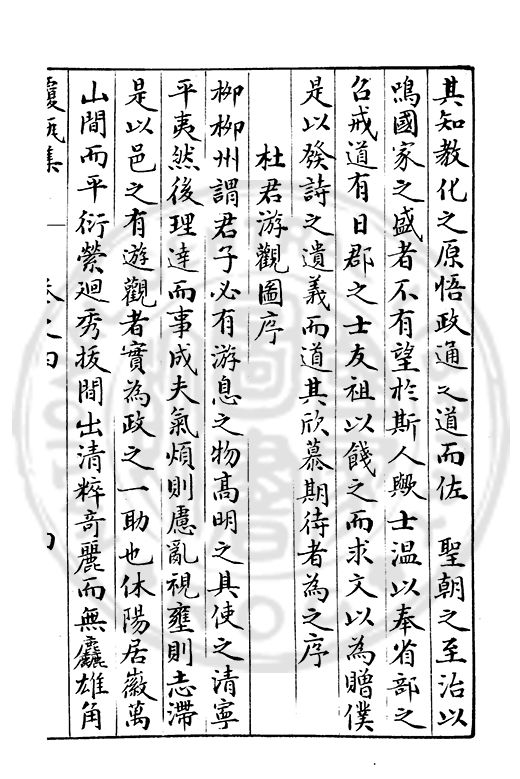 其知教化之原悟政通之道而佐　聖朝之至治以
鳴國家之盛者不有望於斯人歟士溫以奉省部之
召戒道有日郡之士友祖以餞之而求文以為贈僕
是以發詩之遺義而道其欣慕期待者為之序
杜君游觀圖序
柳柳州謂君子必有游息之物高明之具使之清寧
平夷然後理達而事成夫氣煩則慮亂視壅則志滯
是以邑之有遊觀者實為政之一助也休陽居徽萬
山間而平衍縈廻秀拔間出清粹竒麗而無麤雄角
覆瓿集
卷之四